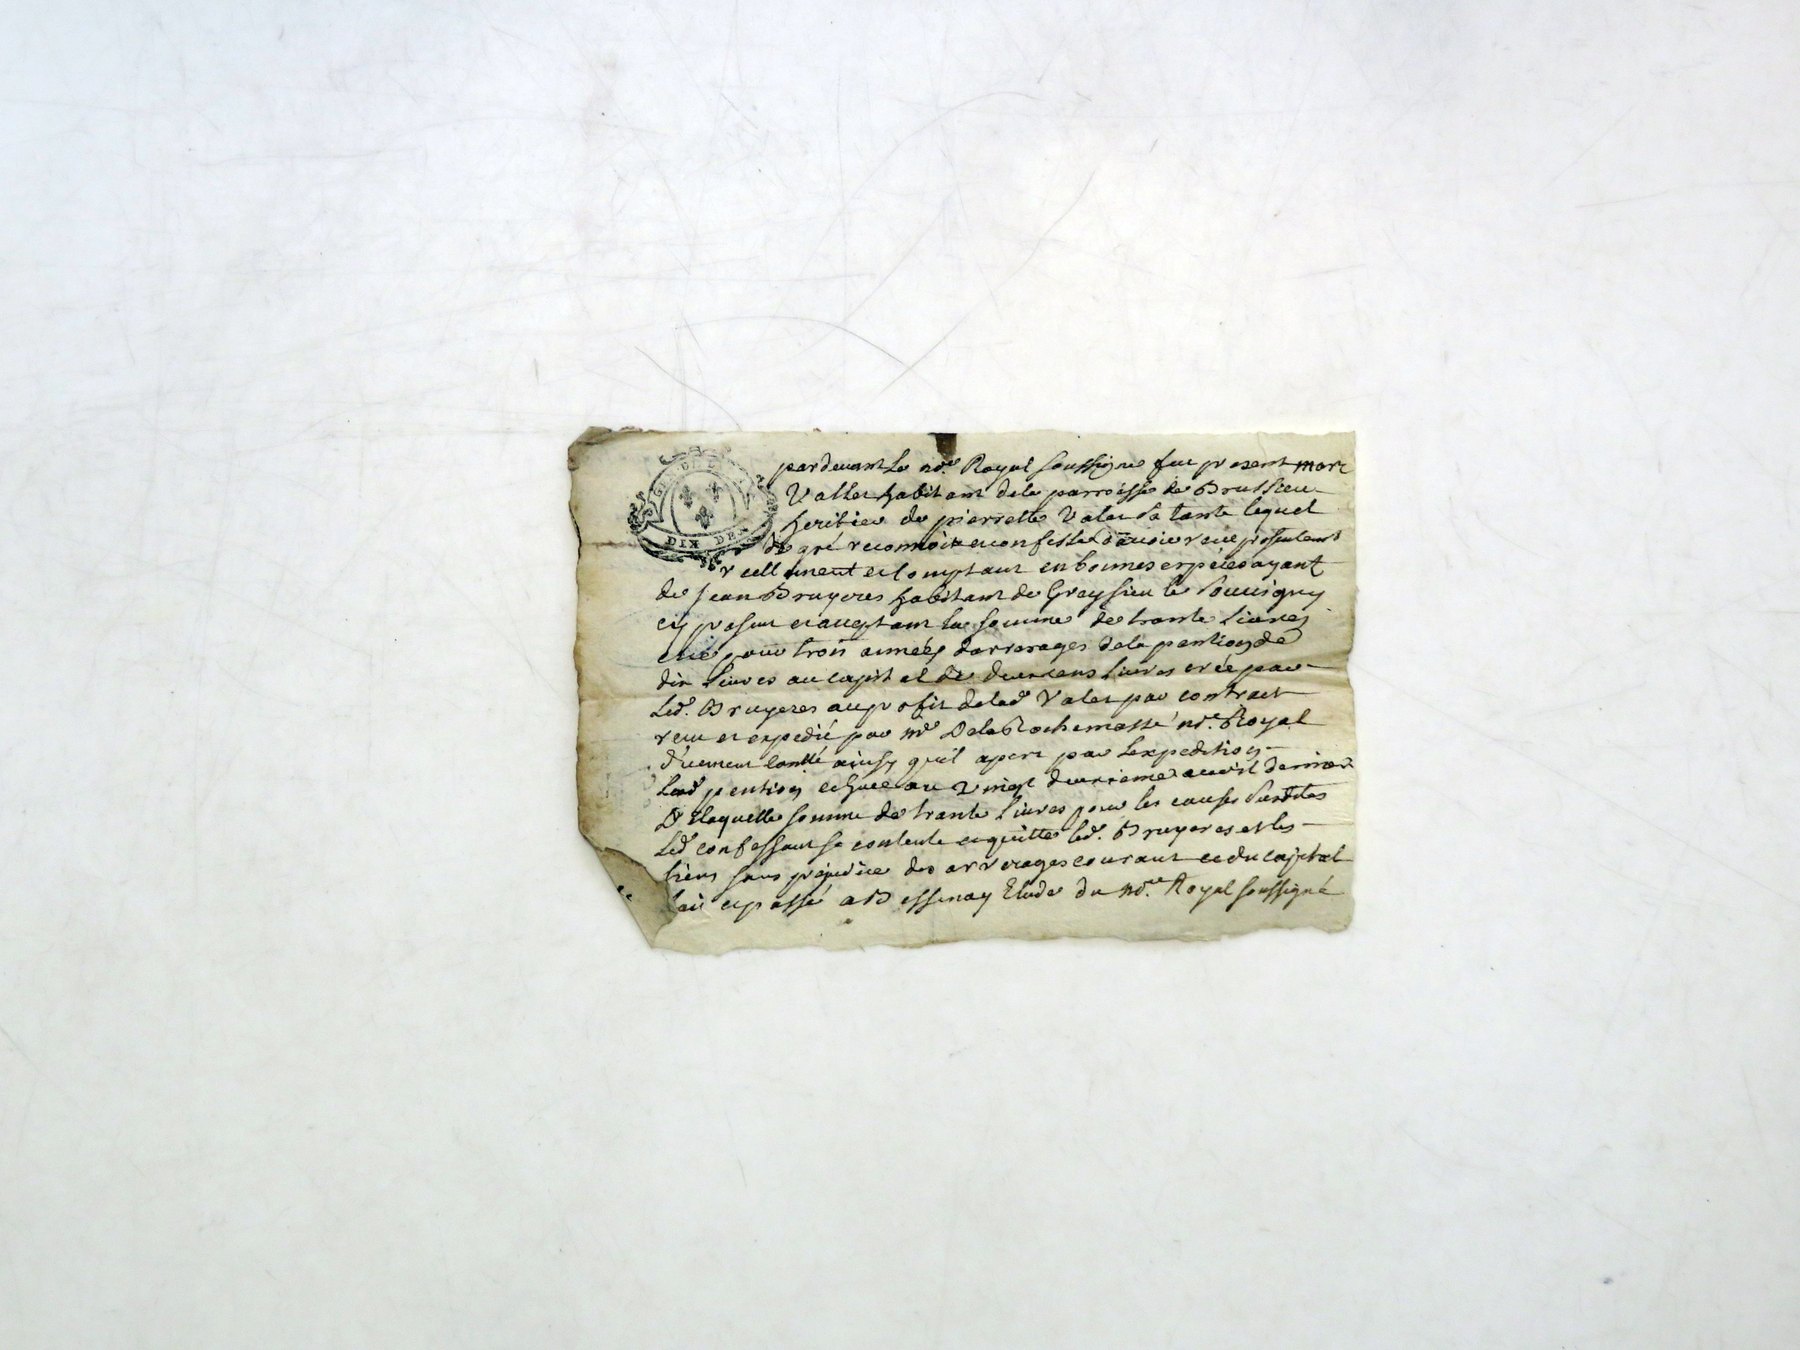 DIX DEN
pardevant Le no.re Royal soussigné fut present marc
Vallet habitant de la parroisse de Brussieu
heritier de pierrette Valet sa tante lequel
de gré reconnoit et confesse d'avoir receu presentem.t
reellement et comptant en bonnes espèces ayant
de Jean Bruyeres habitant de Greysieu le Souvigny
cy present et acceptant la somme de trante livres
pour trois années darrerages de la pention de
dix livres au capital de deux cens livres créé par
Led. Bruyeres au profit de lad. Valet par contract
receu et expedié par m.e Delarochemasse no.re Royal
d'uement controllé ainsy quil apert par Lexpedition
Lad. pention echuee au vingt deuxieme avril dernier
De laquelle somme de trante livres pour les causes susdites
Led. confessant se contente et quitte led. Bruyeres et les
siens sans prejudice des arrerages courant et du capital
fait et passé a Bessenay Etude du no.re Royal soussigné